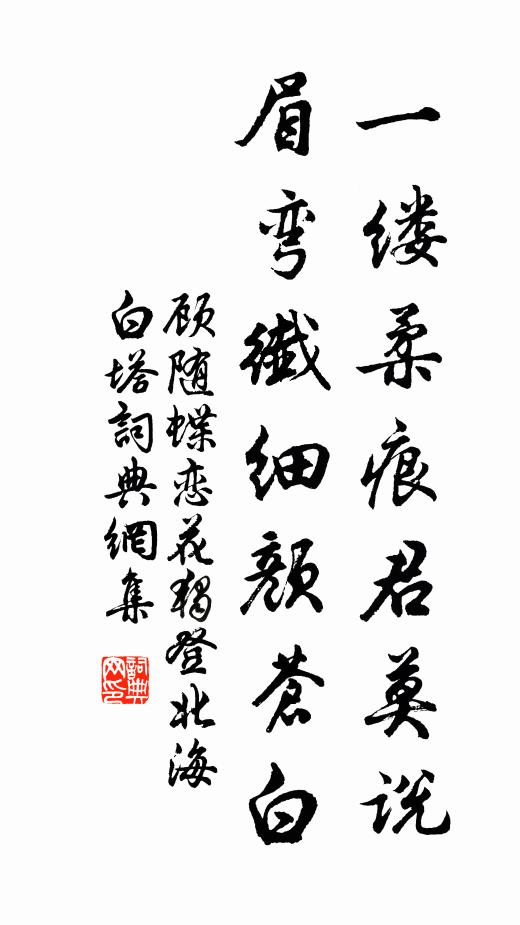 一缕柔痕君莫说
眉弯纖细颜蒼白
顾随蝶恋花独登北海
白塔詞典網集
詞典网印